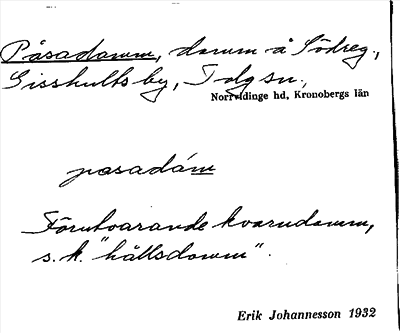 Påsadamm, damm å Södreg.,
Gisshults by, T dg sn.,
Norrvidinge hd, Kronobergs län
pasadám
Förutvarande kvarndamm,
s.k. "hållsdamm".
Erik Johannesson 1932